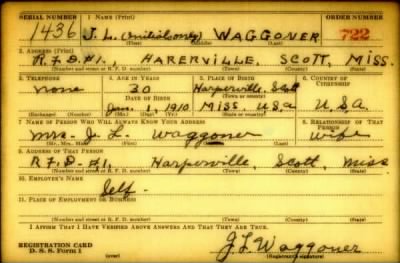 SERIAL NUMBER 1. NAME (Print) ORDER NUMBER
1436 J. L. (Initials only) WAGGONER 722
(First) (Middle) (Last)
2. ADDRESS (Print)
R.F.D. #1. HARERVILLE, SCOTT, MISS.
(Number and street or R. F. D. number) (Town) (County) (State)
3. TELEPHONE 4. AGE IN YEARS 5. PLACE OF BIRTH 6. COUNTRY OF CITIZENSHIP
none 30 Harperville, Scott
DATE OF BIRTH (Town) (County)
Jan. 1, 1910. Miss. U.S.A U.S.A
(Exchange) (Number) (Mo.) (Day) (Yr.) (State) (Country)
7. NAME OF PERSON WHO WILL ALWAYS KNOW YOUR ADDRESS 8. RELATIONSHIP OF THAT PERSON
Mrs. J. L. Waggoner wife
(Mr., Mrs., Miss) (First) (Middle) (Last)
9. ADDRESS OF THAT PERSON
R.F.D. #1, Harperville, Scott, Miss
(Number and street or R. F. D. number) (Town) (County) (State)
10. EMPLOYER'S NAME
Self -
11. PLACE OF EMPLOYMENT OR BUSINESS
(Number and street or R. F. D. number) (Town) (County) (State)
I AFFIRM THAT I HAVE VERIFIED ABOVE ANSWERS AND THAT THEY ARE TRUE.
REGISTRATION CARD
D. S. S. Form 1 (over) J. L. Waggoner
(Registrant's signature)